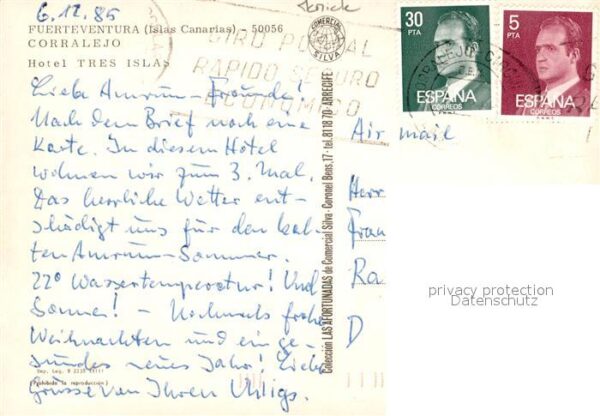 6.12.85
FUERTEVENTURA (Islas Canarias) 50056
CORRALEJO
Hotel TRES ISLAS
GIRO POSTAL
RAPIDO SEGURO
ECONOMICO
COMERCIAL
SILVA
30
PTA
ESPAÑA
CORREOS
5
PTA
ESPAÑA
CORREOS
Liebe Amrum-Freunde!
Nach dem Brief noch eine
Karte. In diesem Hotel
wohnen wir zum 3. Mal.
Das herrliche Wetter ent-
schädigt uns für den kal-
ten Amrum-Sommer.
22° Wassertemperatur! Und
Sonne! - Nochmals frohe
Weihnachten und ein ge-
sundes neues Jahr! Liebe
Grüsse von Ihren Uhligs.
Dep. Leg. B
(Prohibida la reproducción)
Colección LAS AFORTUNADAS de Comercial Silva - Coronel Bens, 17 - tel. 81 18 70 - ARRECIFE
Air mail
Herr
Fran
Ra
D
privacy protection
Datenschutz